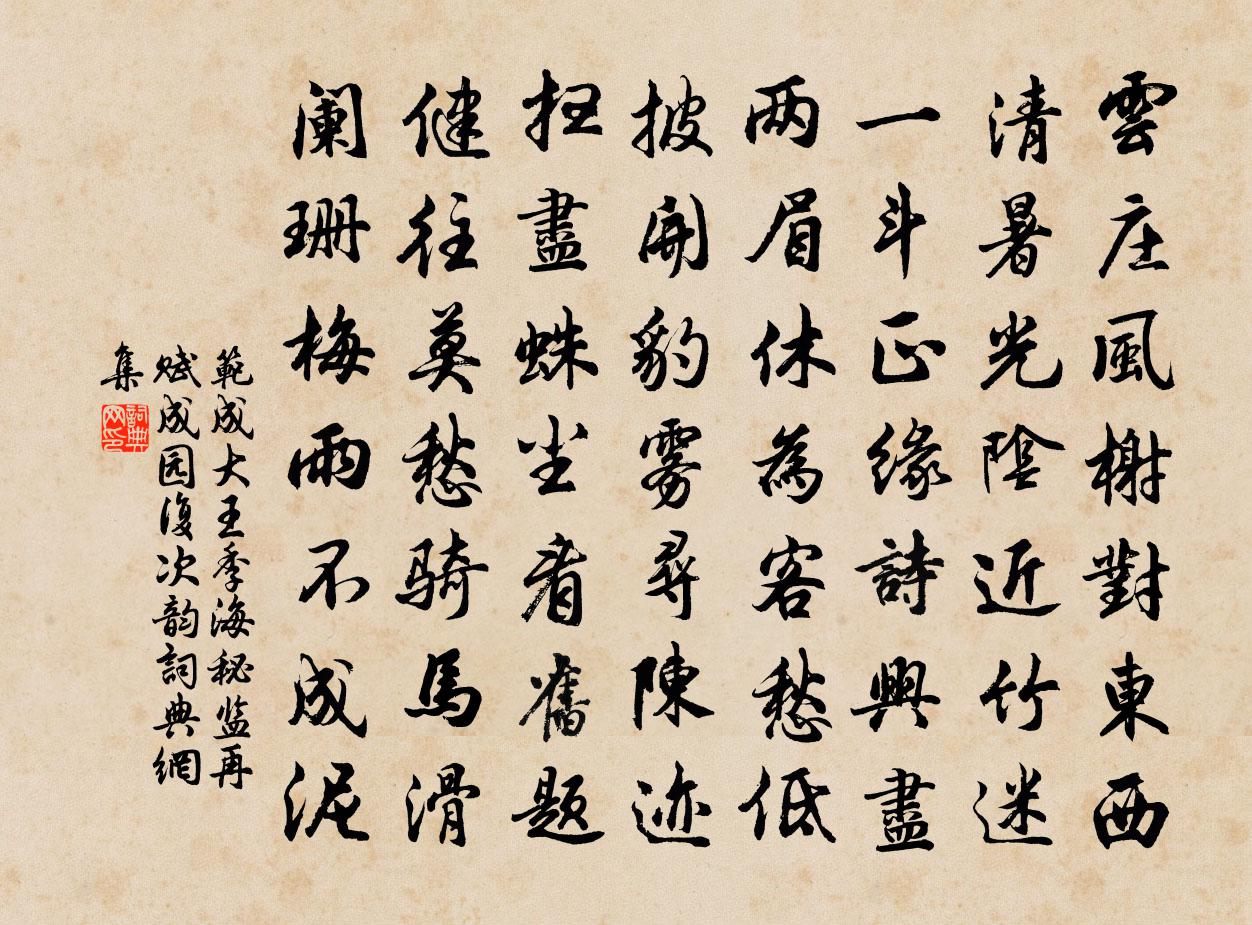 雲庄風榭對東西
清暑光陰近竹迷
一斗正緣詩興盡
两眉休為客愁低
披開豹雾尋陳迹
扫盡蛛尘看舊题
健往莫愁骑馬滑
阑珊梅雨不成泥
範成大王季海秘监再
赋成园復次韵詞典網
集
詞典
网印